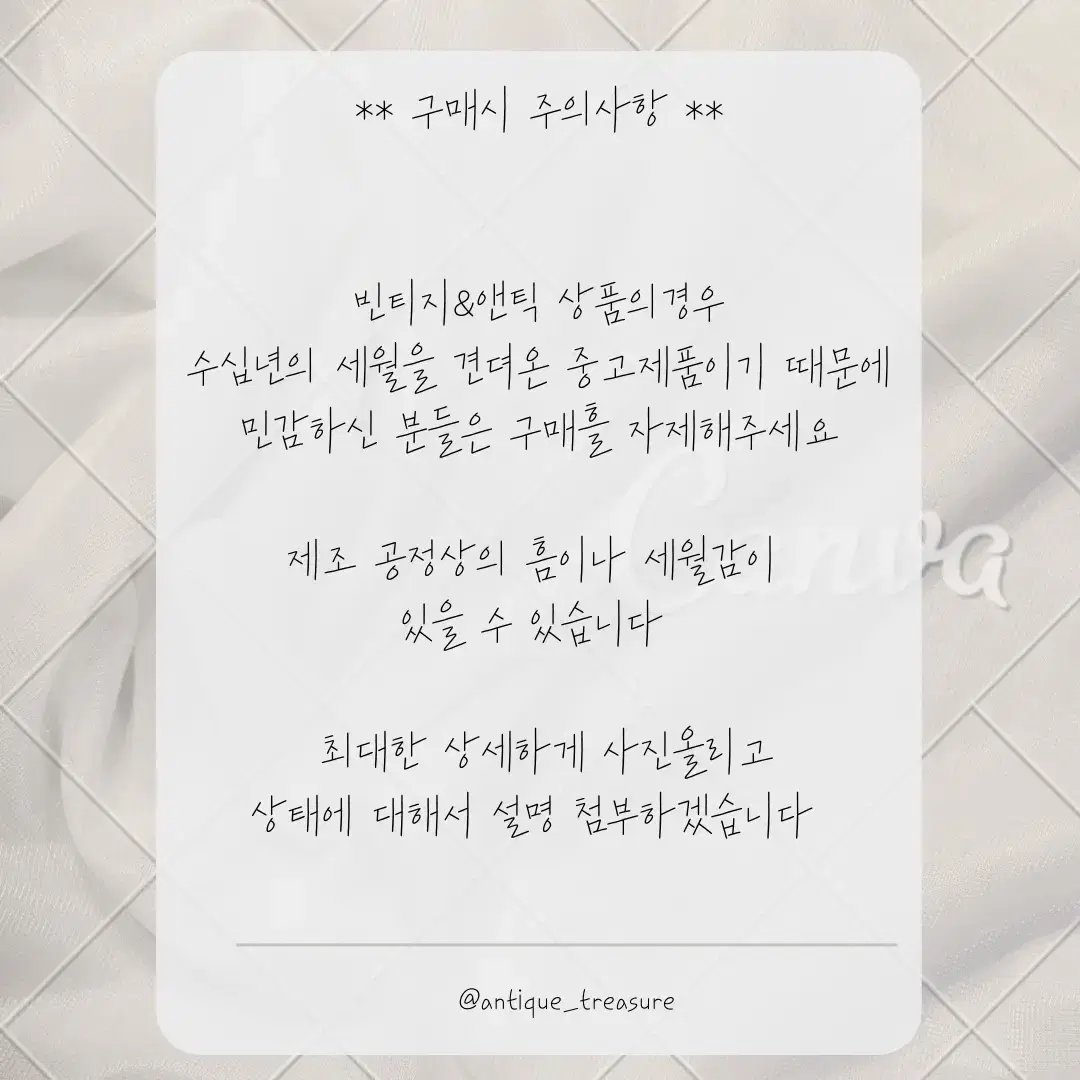 ** 구매시 주의사항 **
빈티지&앤틱 상품의경우
수십년의 세월을 견뎌온 중고제품이기 때문에
민감하신 분들은 구매홀 자제해주세요
제조 공정상의 흠이나 세월감이
있을 수 있습니다
Canva
최대한 상세하게 사진올리고
상태에 대해서 설명 첨부하겠습니다
@antique_treasure